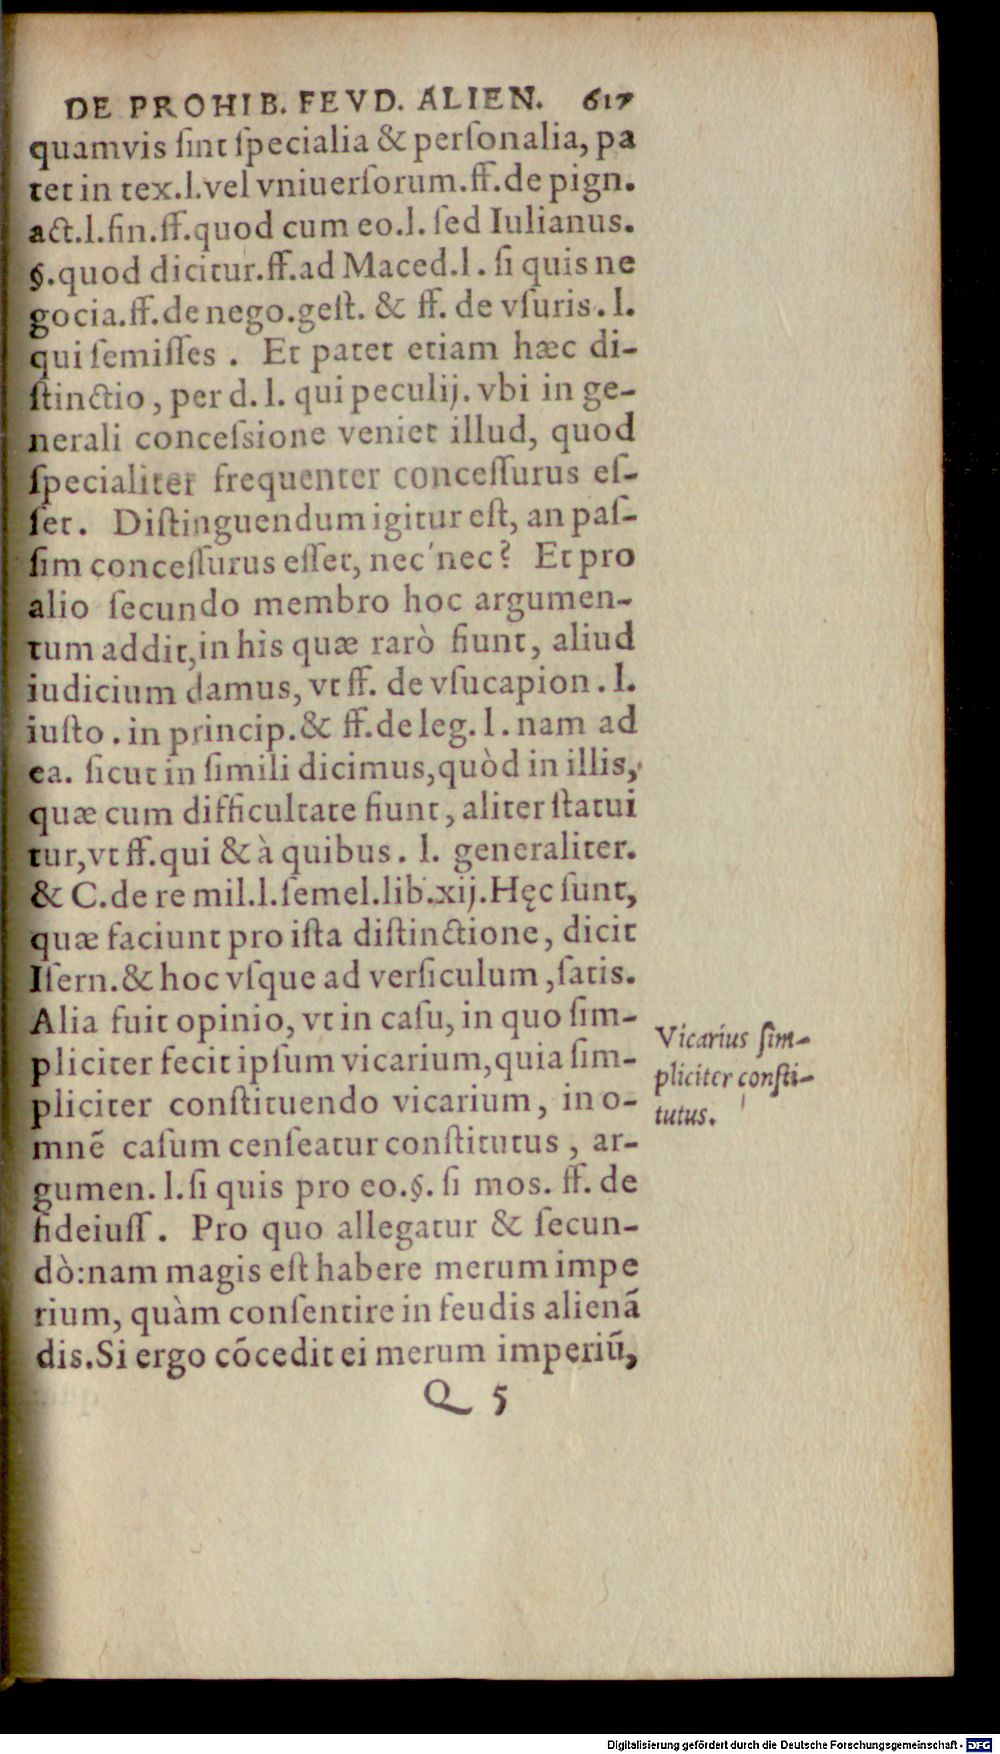 DE PROHIB. FEVD. ALIEN. 617
quamvis ſint ſpecialia & perſonalia, pa
tet in tex.l.vel vniuerſorum.ff.de pign.
act.l.fin.ff.quod cum eo.l. ſed Iulianus.
§.quod dicitur.ff.ad Maced.l. ſi quis ne
gocia.ff.de nego.geſt. & ff. de vſuris. l.
qui ſemiſſes . Et patet etiam hæc di-
ſtinctio, per d. l. qui peculij. vbi in ge-
nerali conceſsione veniet illud, quod
ſpecialiter frequenter conceſſurus eſ-
ſet. Diſtinguendum igitur eſt, an paſ-
ſim conceſſurus eſſet, nec nec? Et pro
alio ſecundo membro hoc argumen-
tum addit,in his quæ rarò fiunt, aliud
iudicium damus, vt ff. de vſucapion. l.
iuſto . in princip.& ff.de leg. l. nam ad
ea. ſicut in ſimili dicimus,quòd in illis,
quæ cum difficultate fiunt, aliter ſtatui
tur,vt ff.qui & à quibus. l. generaliter.
& C.de re mil.l.ſemel.lib.xij.Hęc ſunt,
quæ faciunt pro iſta diſtinctione, dicit
Iſern.& hoc vſque ad verſiculum,ſatis.
Alia fuit opinio, vt in caſu, in quo ſim-
pliciter fecit ipſum vicarium,quia ſim-
pliciter conſtituendo vicarium, in o-
mnẽ caſum cenſeatur conſtitutus, ar-
gumen. l.ſi quis pro eo.§. ſi mos. ff. de
fideiuſſ. Pro quo allegatur & ſecun-
dò:nam magis eſt habere merum impe
rium, quàm conſentire in feudis alienã
dis.Si ergo cõcedit ei merum imperiũ,
Q 5
Vicarius ſim-
pliciter conſti-
tutus.
Digitalisierung gefördert durch die Deutsche Forschungsgemeinschaft - DFG